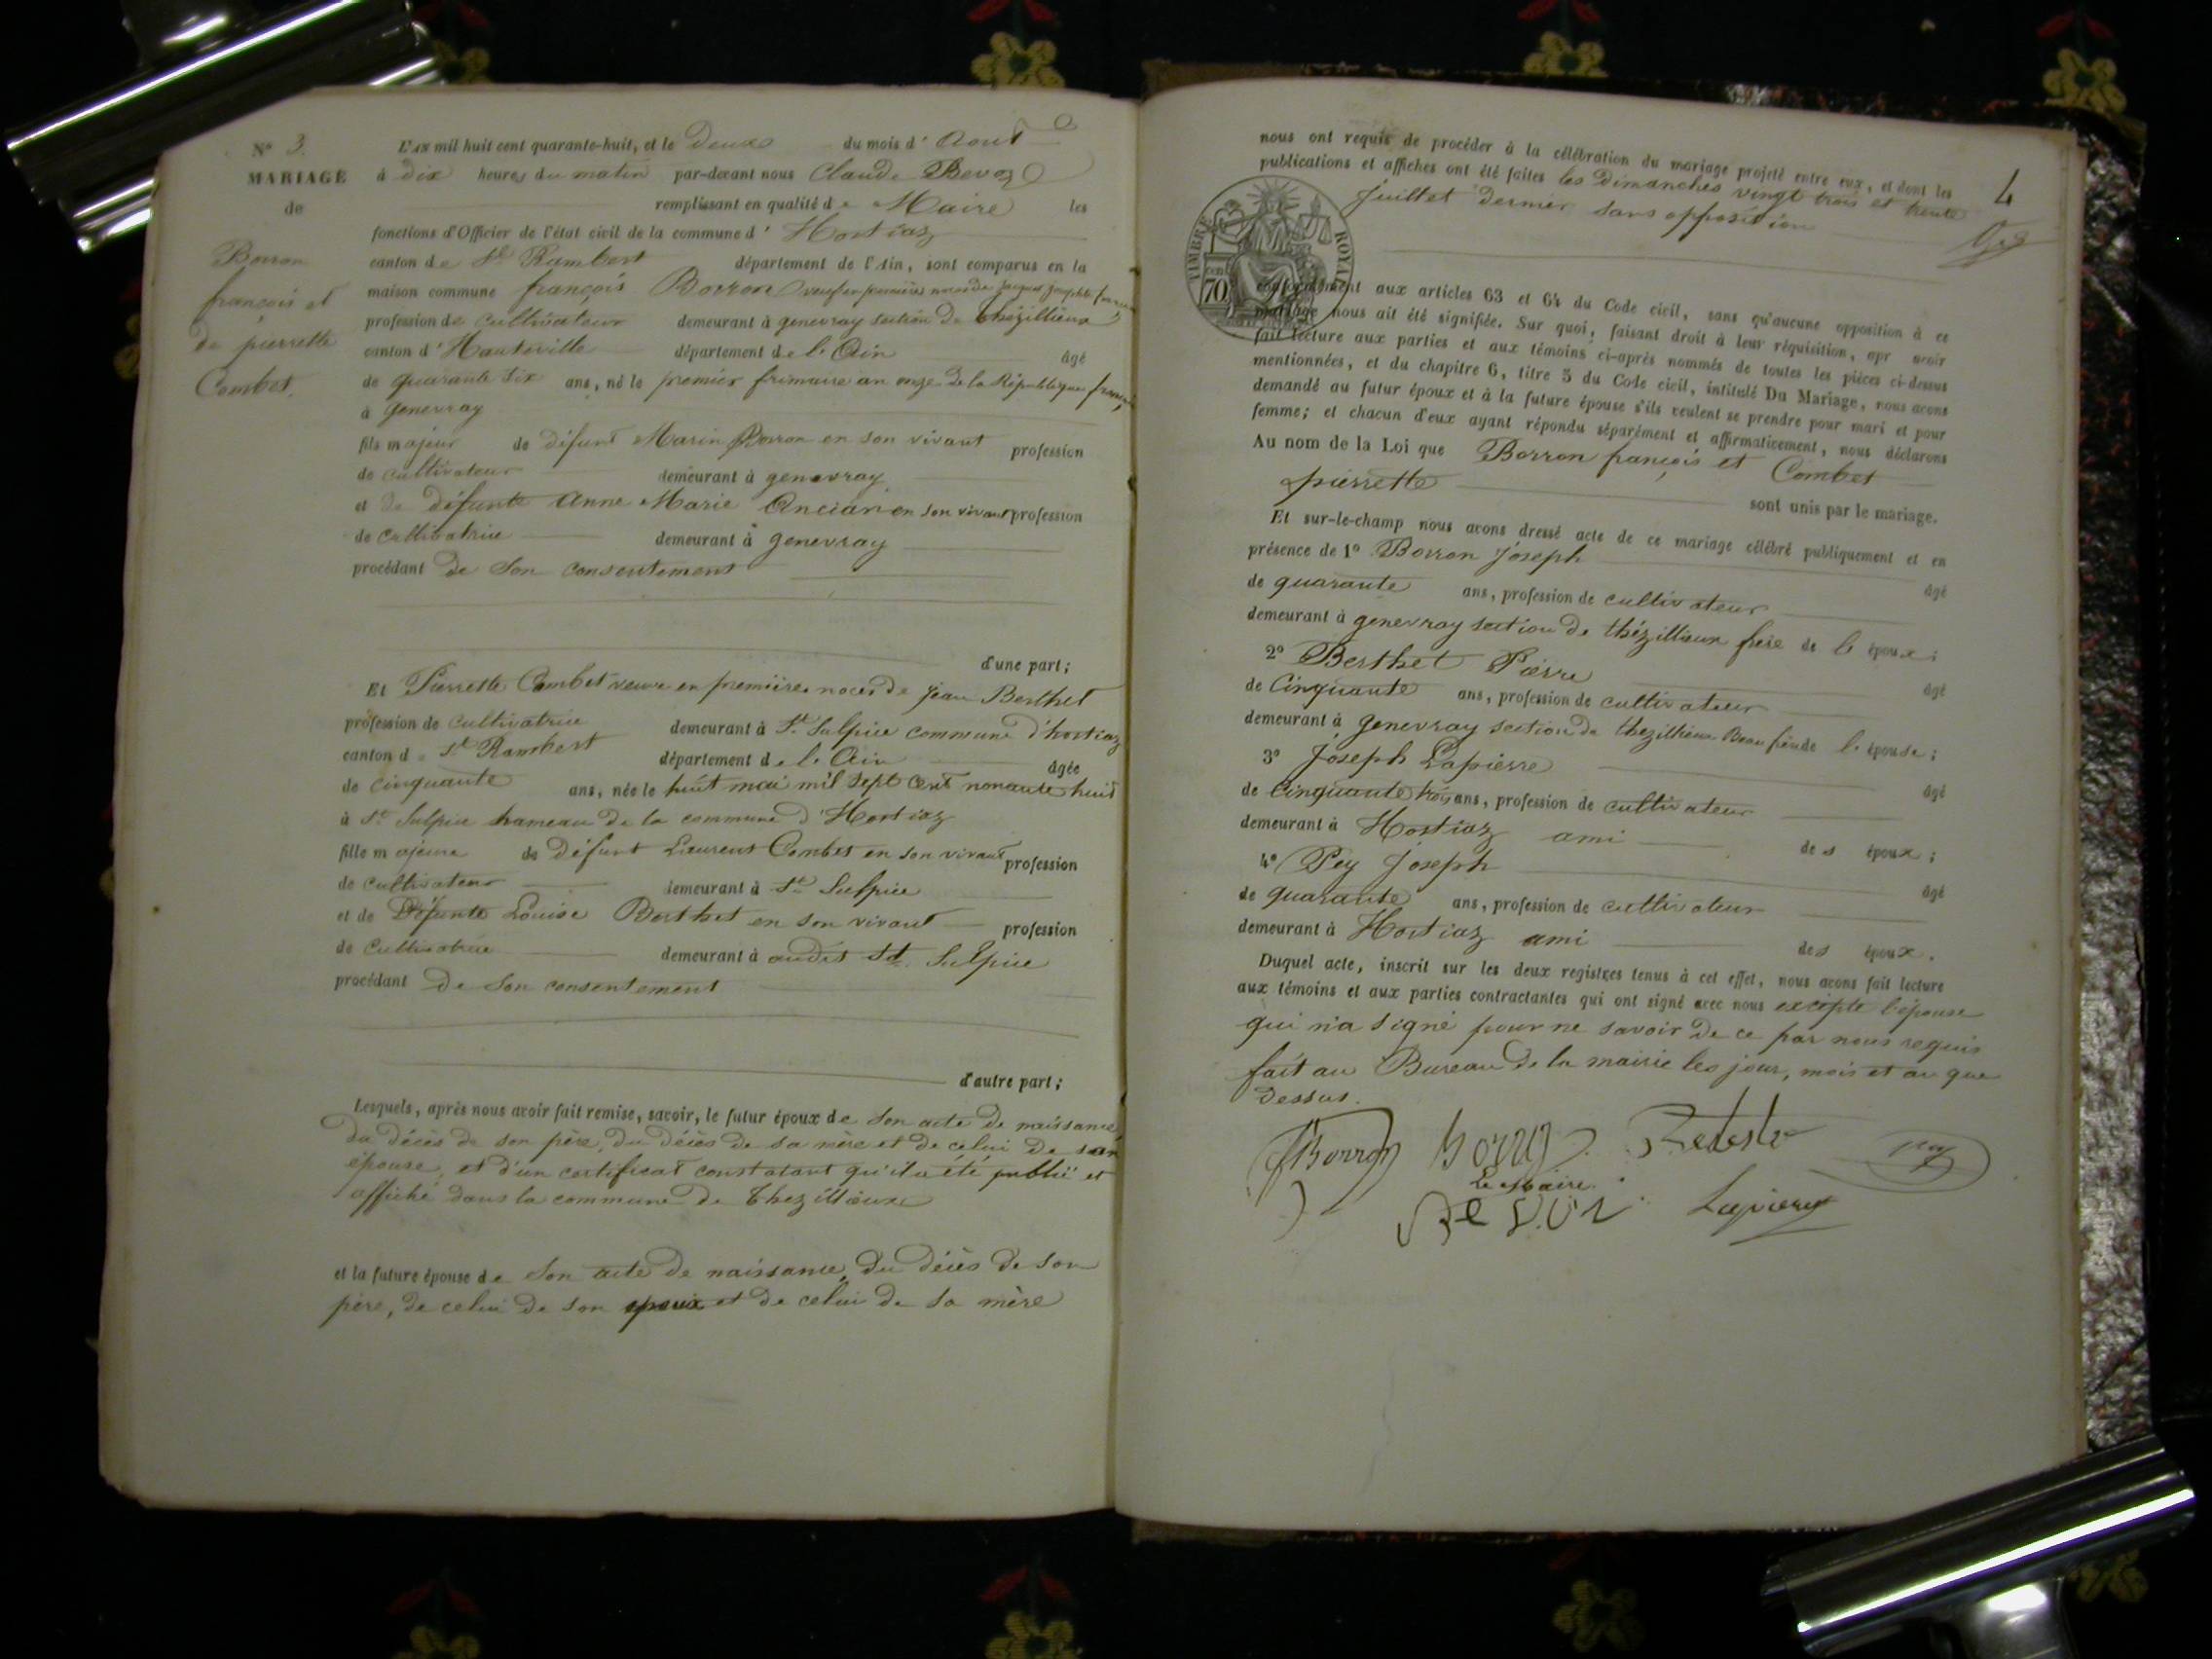 N° 3.
MARIAGE
de
Borron
françois et
de pierrette
Combet.
L'AN mil huit cent quarante-huit, et le Deux du mois d' Aout
à dix heures du matin par-devant nous Claude Bevoz
remplissant en qualité de Maire les
fonctions d'Officier de l'état civil de la commune d' Hostiaz
canton de St Rambert département de l'Ain, sont comparus en la
maison commune françois Borron veuf en premières noces de Jacquet Josephte
profession de cultivateur demeurant à genevray section de thézillieux
canton d' Hauteville département de l' Ain âgé
de quarante six ans, né le premier frimaire an onze de la République
à Genevray
fils majeur de défunt Marin Borron en son vivant profession
de cultivateur demeurant à genevray
et de défunte Anne Marie Ancian en son vivant profession
de cultivatrice demeurant à genevray
procédant de son consentement
d'une part;
Et Pierrette Combet veuve en premières noces de Jean Berthet
profession de cultivatrice demeurant à St Sulpice commune d'hostiaz
canton de St Rambert département de l' Ain âgée
de cinquante ans, née le huit mai mil sept cent nonante huit
à St Sulpice hameau de la commune d' Hostiaz
fille majeure de défunt Laurent Combet en son vivant profession
de cultivateur demeurant à St Sulpice
et de Défunte Louise Berthet en son vivant profession
de cultivatrice demeurant à audit St Sulpice
procédant de son consentement
d'autre part;
Lesquels, après nous avoir fait remise, savoir, le futur époux de son acte de naissance,
du décès de son père, du décès de sa mère et de celui de son
épouse, et d'un certificat constatant qu'il a été publié et
affiché dans la commune de Thezillieux
et la future épouse de son acte de naissance, du décès de son
père, de celui de son epoux et de celui de sa mère
4
nous ont requis de procéder à la célébration du mariage projeté entre eux, et dont les
publications et affiches ont été faites les Dimanches vingt trois et trente
Juillet dernier sans opposition
TIMBRE ROYAL
70
conformément aux articles 63 et 64 du Code civil, sans qu'aucune opposition à ce
mariage nous ait été signifiée. Sur quoi, faisant droit à leur réquisition, apr avoir
fait lecture aux parties et aux témoins ci-après nommés de toutes les pièces ci-dessus
mentionnées, et du chapitre 6, titre 5 du Code civil, intitulé Du Mariage, nous avons
demandé au futur époux et à la future épouse s'ils veulent se prendre pour mari et pour
femme; et chacun d'eux ayant répondu séparément et affirmativement, nous déclarons
Au nom de la Loi que Borron françois et Combet
pierrette sont unis par le mariage.
Et sur-le-champ nous avons dressé acte de ce mariage célébré publiquement et en
présence de 1° Borron Joseph âgé
de quarante ans, profession de cultivateur
demeurant à genevray section de thézillieux frère de l' époux;
2° Berthet Pierre âgé
de Cinquante ans, profession de cultivateur
demeurant à genevray section de thezillieux Beau frère de l' épouse;
3° Joseph Lapierre âgé
de Cinquante trois ans, profession de cultivateur
demeurant à Hostiaz ami des époux;
4° Pey Joseph âgé
de quarante ans, profession de cultivateur
demeurant à Hostiaz ami des époux.
Duquel acte, inscrit sur les deux registres tenus à cet effet, nous avons fait lecture
aux témoins et aux parties contractantes qui ont signé avec nous excépté l'épouse
qui n'a signé pour ne savoir de ce par nous requis
fait au Bureau de la mairie les jour, mois et an que
dessus.
Borron
Le Maire.
Lapierre